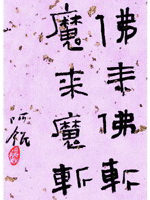 佛来佛斬
魔来魔斬